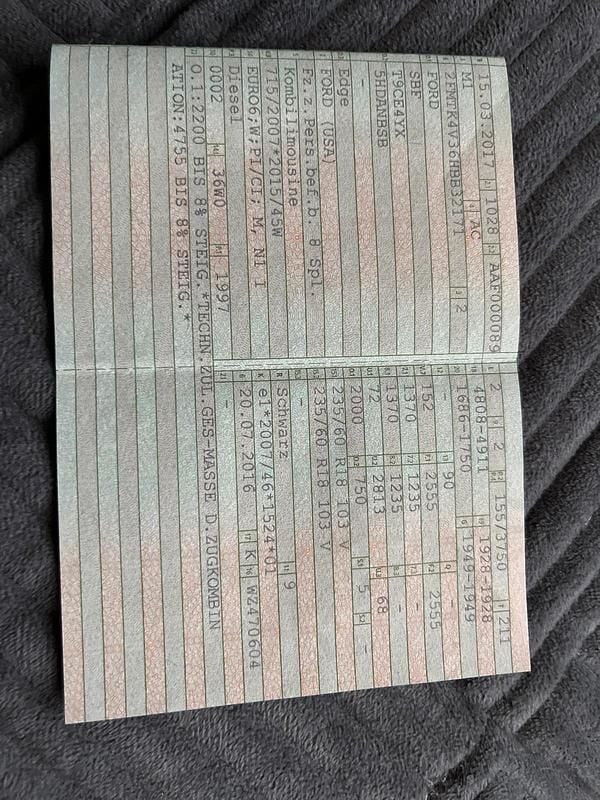 15.03.2017 1028 AAF000089
M1 AC
2FMTK4V36HBB32171 2
FORD
SBF
T9CE4YX
5HDANBSB
-
Edge
FORD (USA)
Fz.z.Pers.bef.b. 8 Spl.
Kombilimousine
715/2007*2015/45W
EURO6;W;PI/CI; M, N1 I
Diesel
0002 36W0 1997
2 2 155/3750 211
4808-4911 1928-1928
1686-1750 1949-1949
- 90 -
152 2555 2555
1370 1235 -
1370 1235 -
72 2813 68
2000 750 5 -
235/60 R18 103 V
235/60 R18 103 V
-
Schwarz 9
e1*2007/46*1524*01
20.07.2016 K WZ470604
-
O.1:2200 BIS 8% STEIG.*TECHN.ZUL.GES-MASSE D.ZUGKOMBIN
ATION:4755 BIS 8% STEIG.*